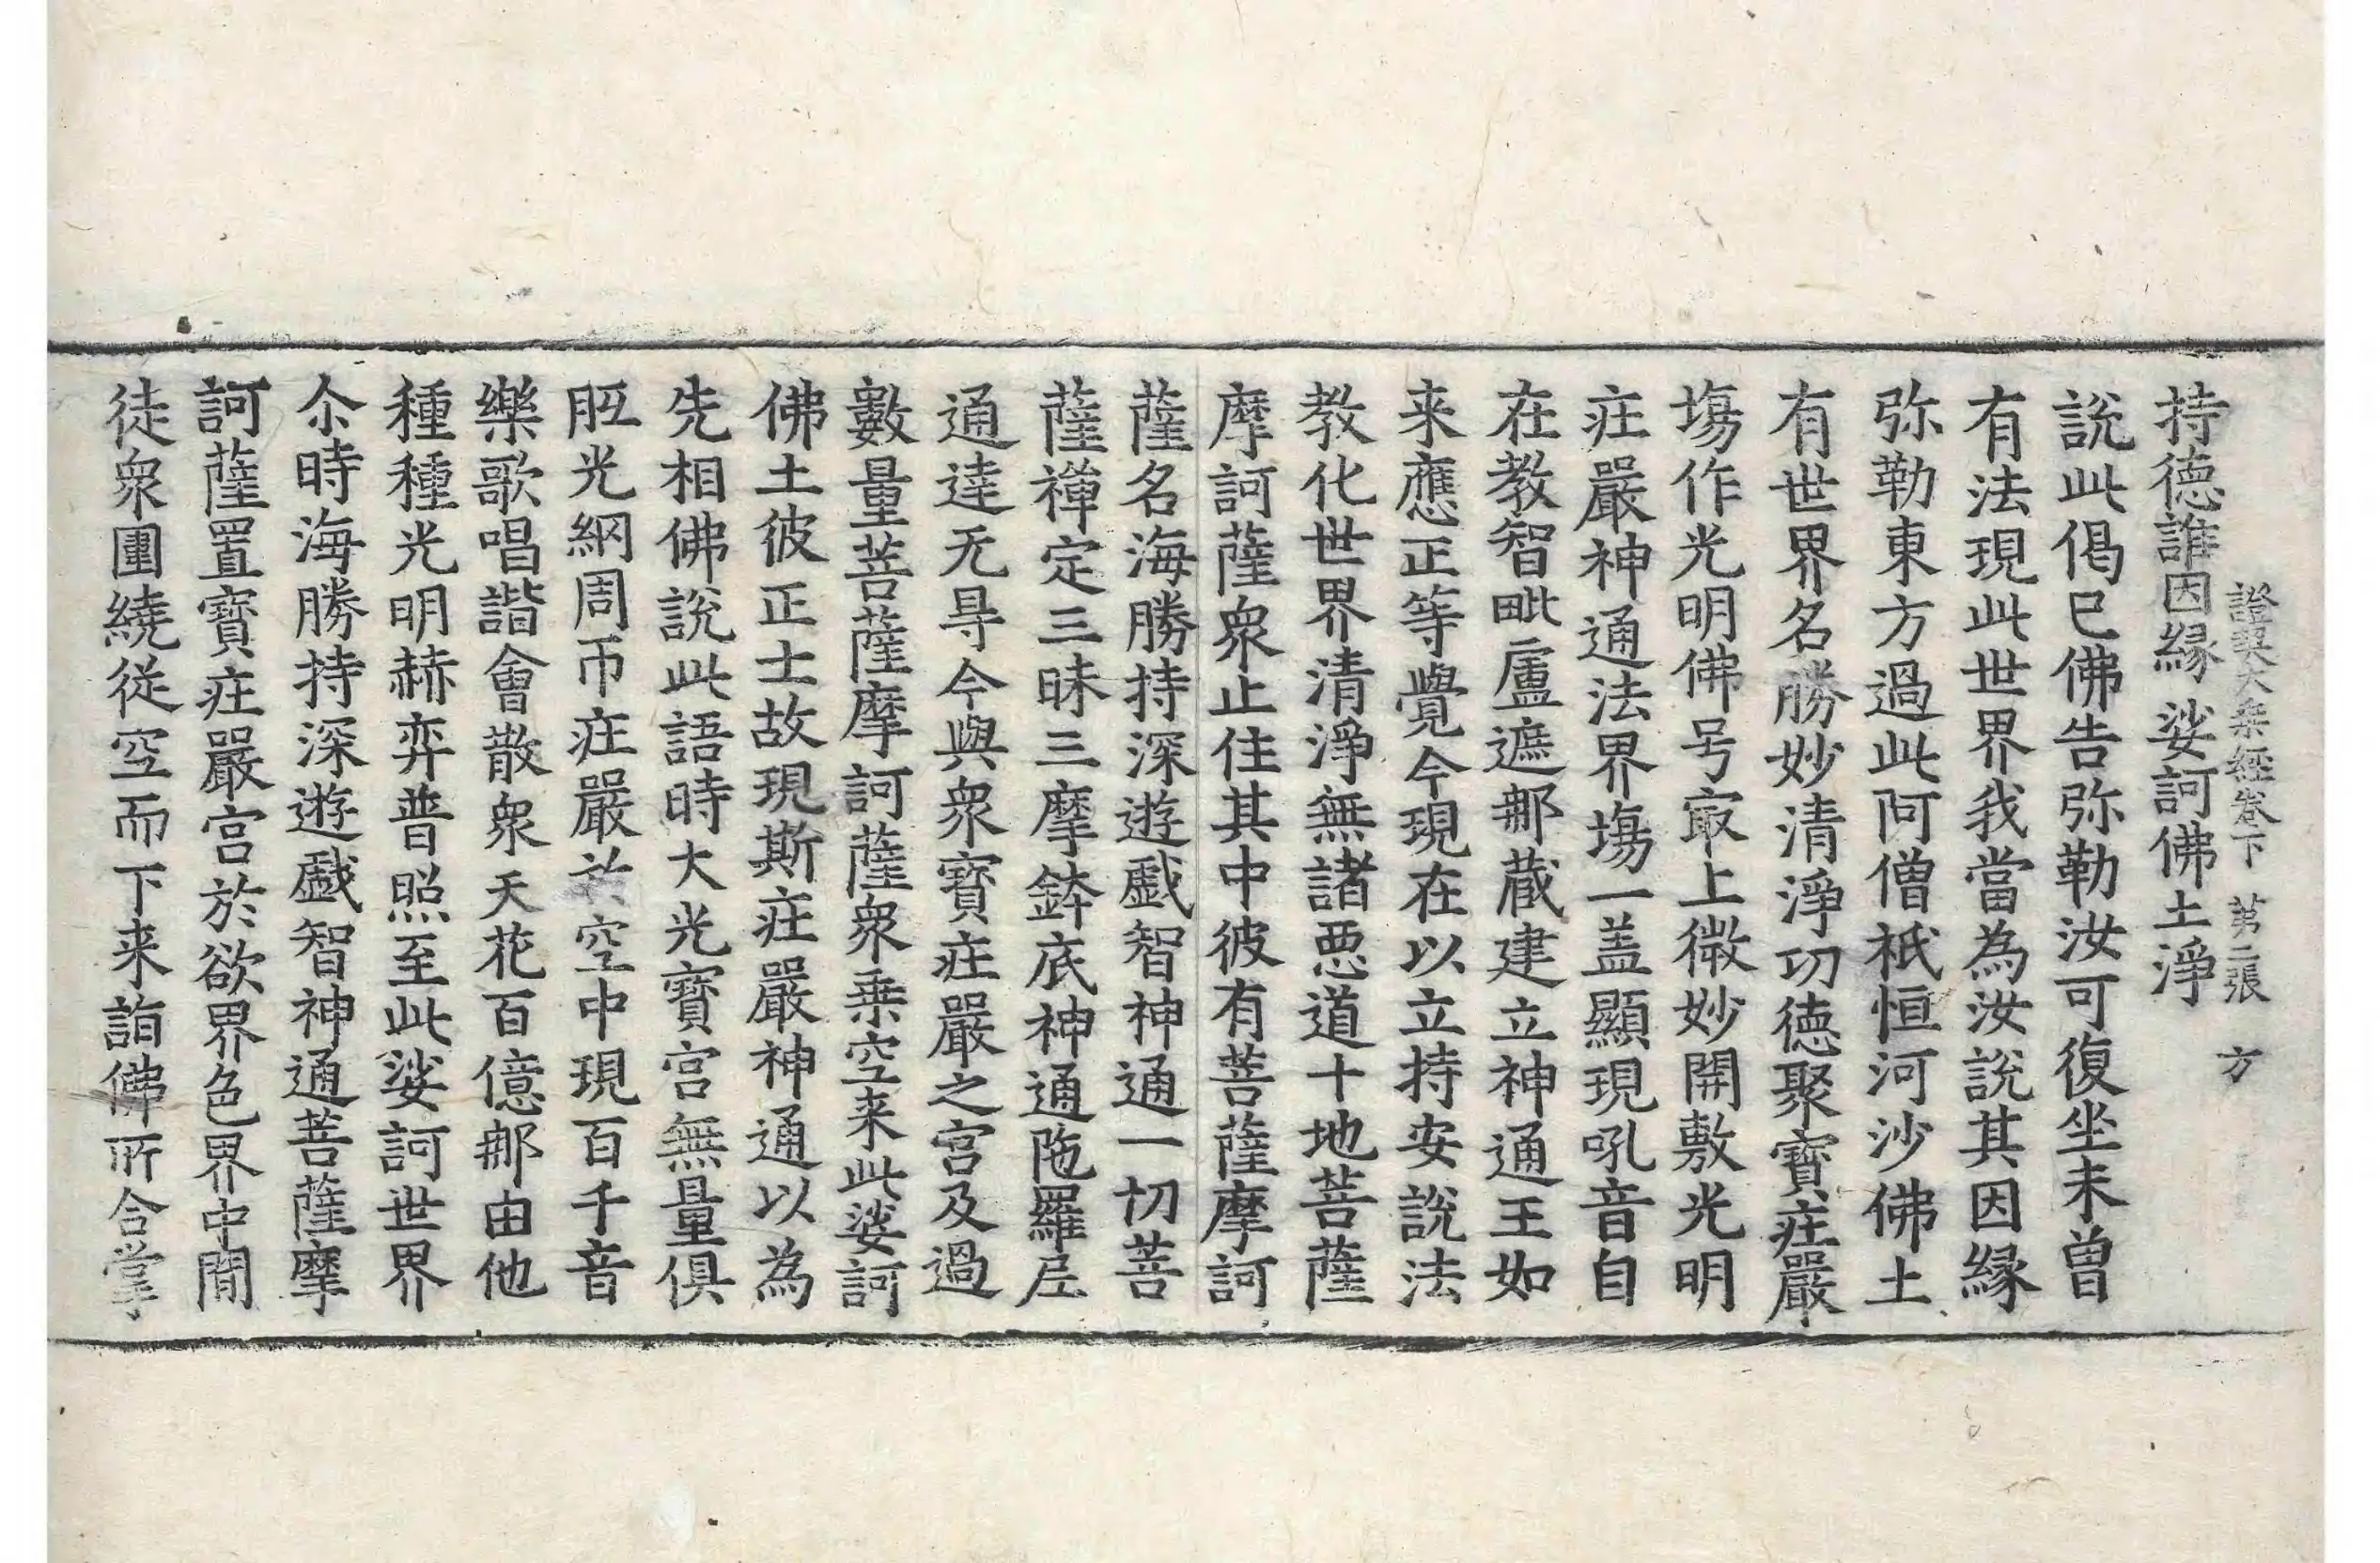 證契大乘經卷下 第二張 方
持德誰因縁 娑訶佛土淨
說此偈已佛告弥勒汝可復坐未曽
有法現此世界我當為汝說其因縁
弥勒東方過此阿僧祇恒河沙佛土
有世界名勝妙清淨功德聚寶莊嚴
塲作光明佛号㝡上微妙開敷光明
莊嚴神通法界塲一盖顯現吼音自
在教智毗盧遮那蔵建立神通王如
来應正等覺今現在以立持安說法
教化世界清淨無諸惡道十地菩薩
摩訶薩衆止住其中彼有菩薩摩訶
薩名海勝持深遊戱智神通一切菩
薩禪定三昧三摩鉢底神通陁羅尼
通達无㝵今與衆寶莊嚴之宮及過
數量菩薩摩訶薩衆乗空来此娑訶
佛土彼正士故現斯莊嚴神通以為
先相佛說此語時大光寶宮無量俱
胝光網周帀莊嚴於空中現百千音
樂歌唱諧會散衆天花百億那由他
種種光明赫弈普照至此娑訶世界
尒時海勝持深遊戱智神通菩薩摩
訶薩置寶莊嚴宮於欲界色界中間
徒衆圍繞從空而下来詣佛所合掌